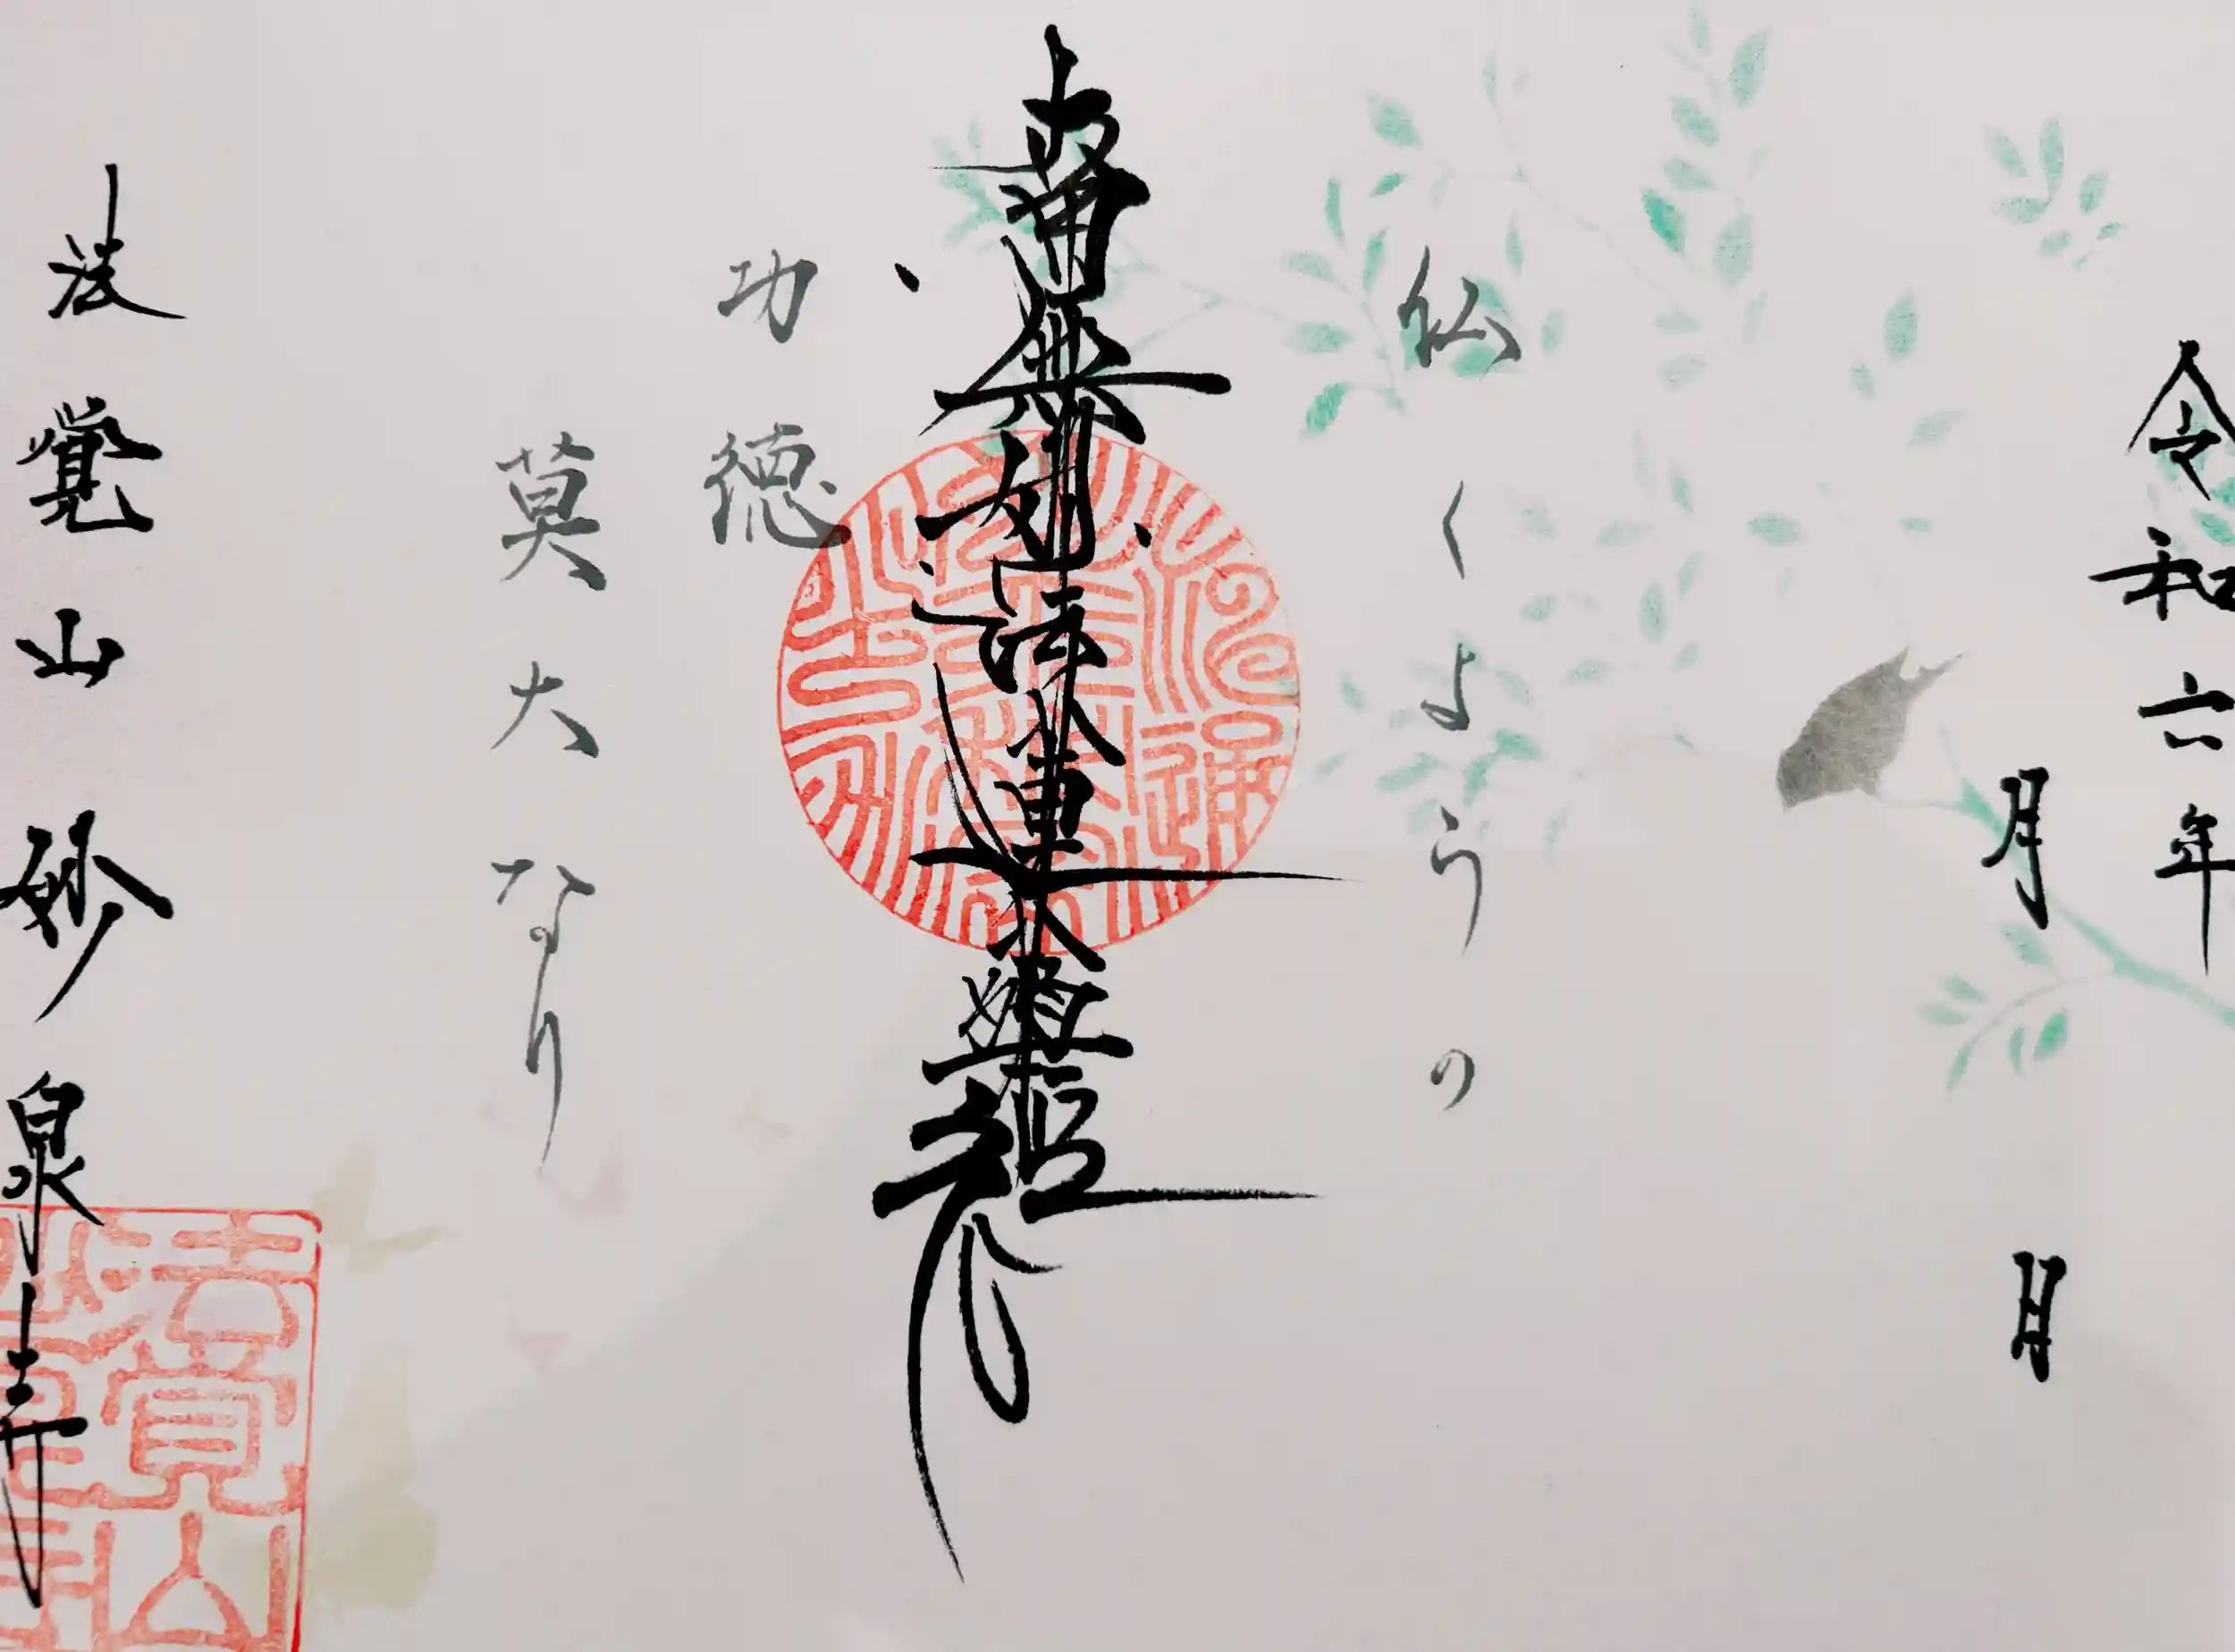 令和六年
月 日
仏くようの
南無妙法蓮華經
功徳
莫大なり
法覺山妙泉寺